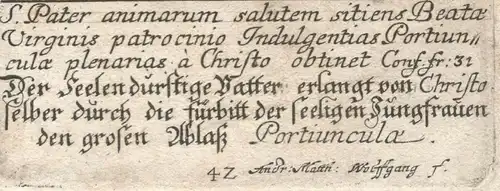 S. Pater animarum salutem sitiens Beatæ
Virginis patrocinio Indulgentias Portiun⸗
culæ plenarias a Christo obtinet Conf. fr: 31
Der Seelen dürstige Vatter erlangt von Christo
selber durch die fürbitt der seeligen Jungfrauen
den grosen Ablaß Portiunculæ.
42 Andr: Matth: Wolffgang f.